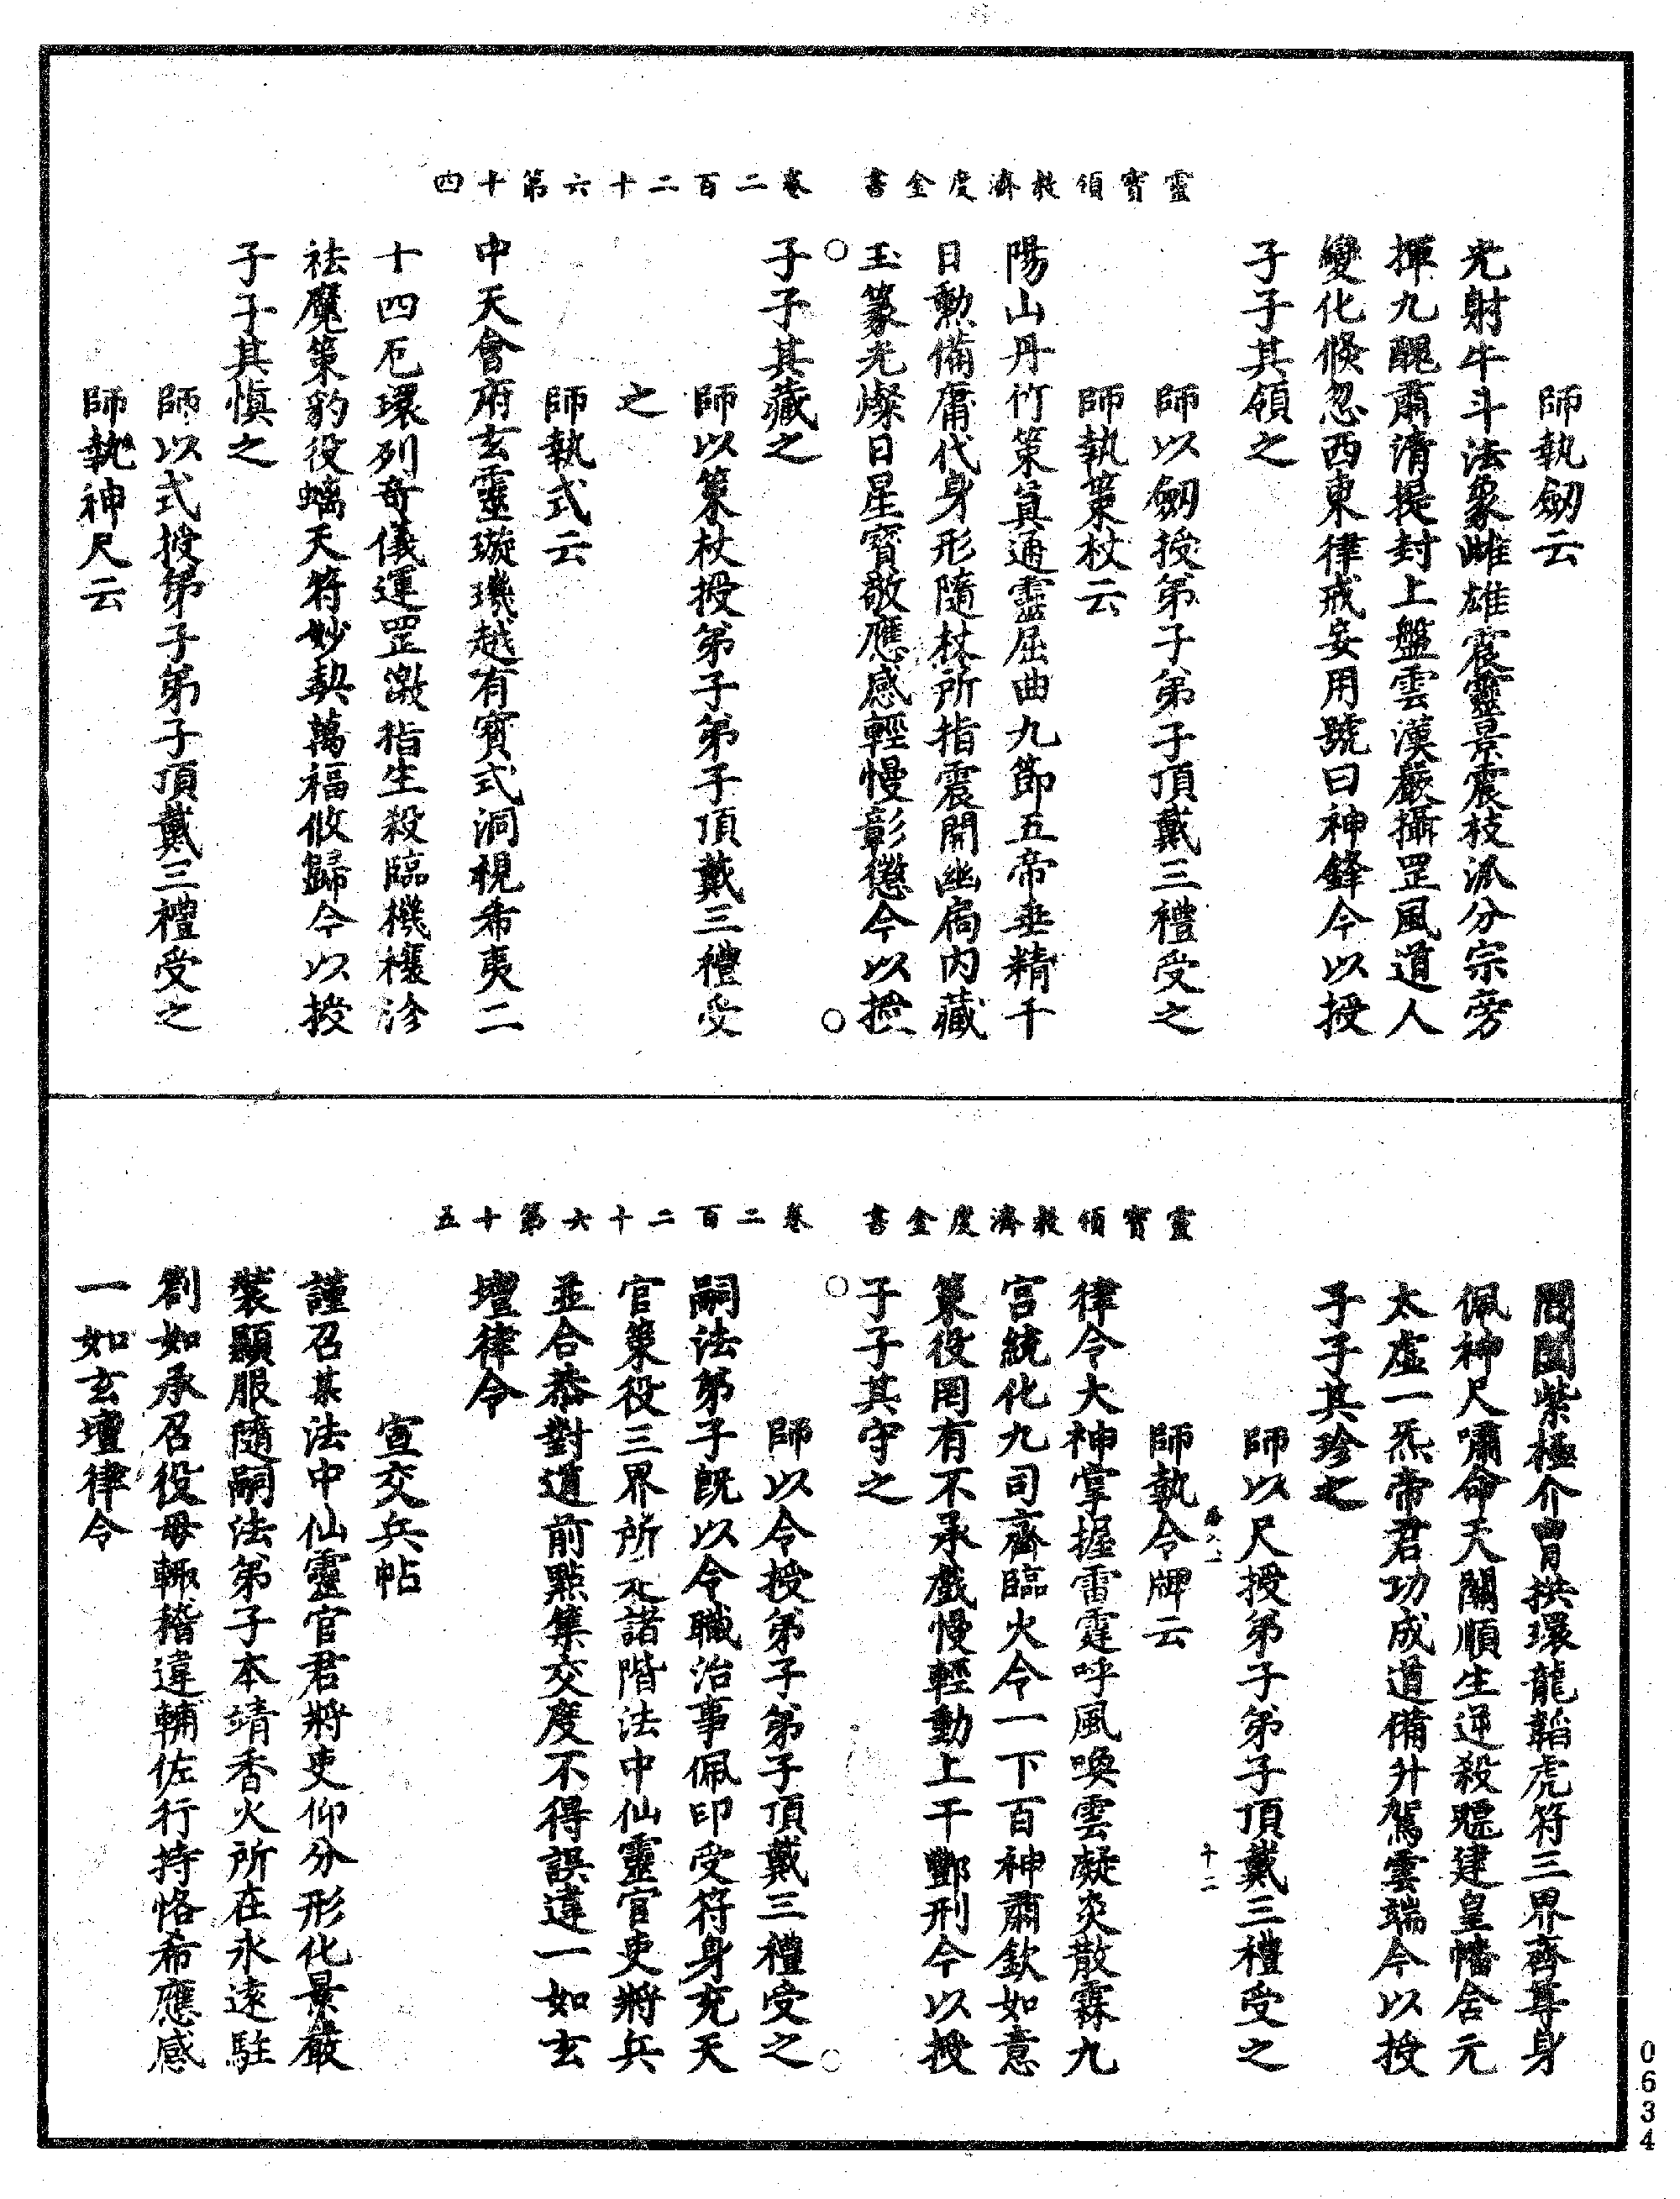 靈寶領教濟度金書　卷二百二十六第十四
師執劒云
光射牛斗法象雌雄宸靈景震枝派分宗旁
揮九醜肅清提封上盤雲漢嚴攝罡風道人
變化倏忽西東律戒妄用號曰神鋒今以授
子子其領之
師以劒授弟子弟子頂戴三禮受之
師執策杖云
陽山丹竹策真通靈屈曲九節五帝垂精千
日勲備庸代身形隨杖所指震開幽扃內藏
玉篆光燦日星寶敬應感輕慢彰懲今以授
子子其藏之
師以策杖授弟子弟子頂戴三禮受
之
師執式云
中天會府玄靈璇璣越有寶式洞視希夷二
十四卮環列奇儀運罡激指生殺臨機禳沴
祛魔策豹役螭天符妙契萬福攸歸今以授
子子其慎之
師以式授弟子弟子頂戴三禮受之
師執神尺云
靈寶領教濟度金書　卷二百二十六第十五
閶闔紫極介胄拱環龍韜虎符三界齊尊身
佩神尺嘯命天關順生逆殺魁建皇幡合元
太虛一炁帝君功成道備升駕雲端今以授
子子其珍之
師以尺授弟子弟子頂戴三禮受之
十二
師執令牌云
律令大神掌握雷霆呼風喚雲凝炎散霖九
宮統化九司齊臨火令一下百神肅欽如意
策役罔有不承戲慢輕動上干酆刑今以授
子子其守之
師以令授弟子弟子頂戴三禮受之
嗣法弟子旣以令職治事佩印受符身充天
官策役三界所元諸階法中仙靈官吏將兵
並合恭對道前點集交度不得誤違一如玄
壇律令
宣交兵帖
謹召某法中仙靈官君將吏仰分形化景嚴
裝顯服隨嗣法弟子本靖香火所在永遠駐
劄如承召役毋輒稽違輔佐行持恪希應感
一如玄壇律令
0634